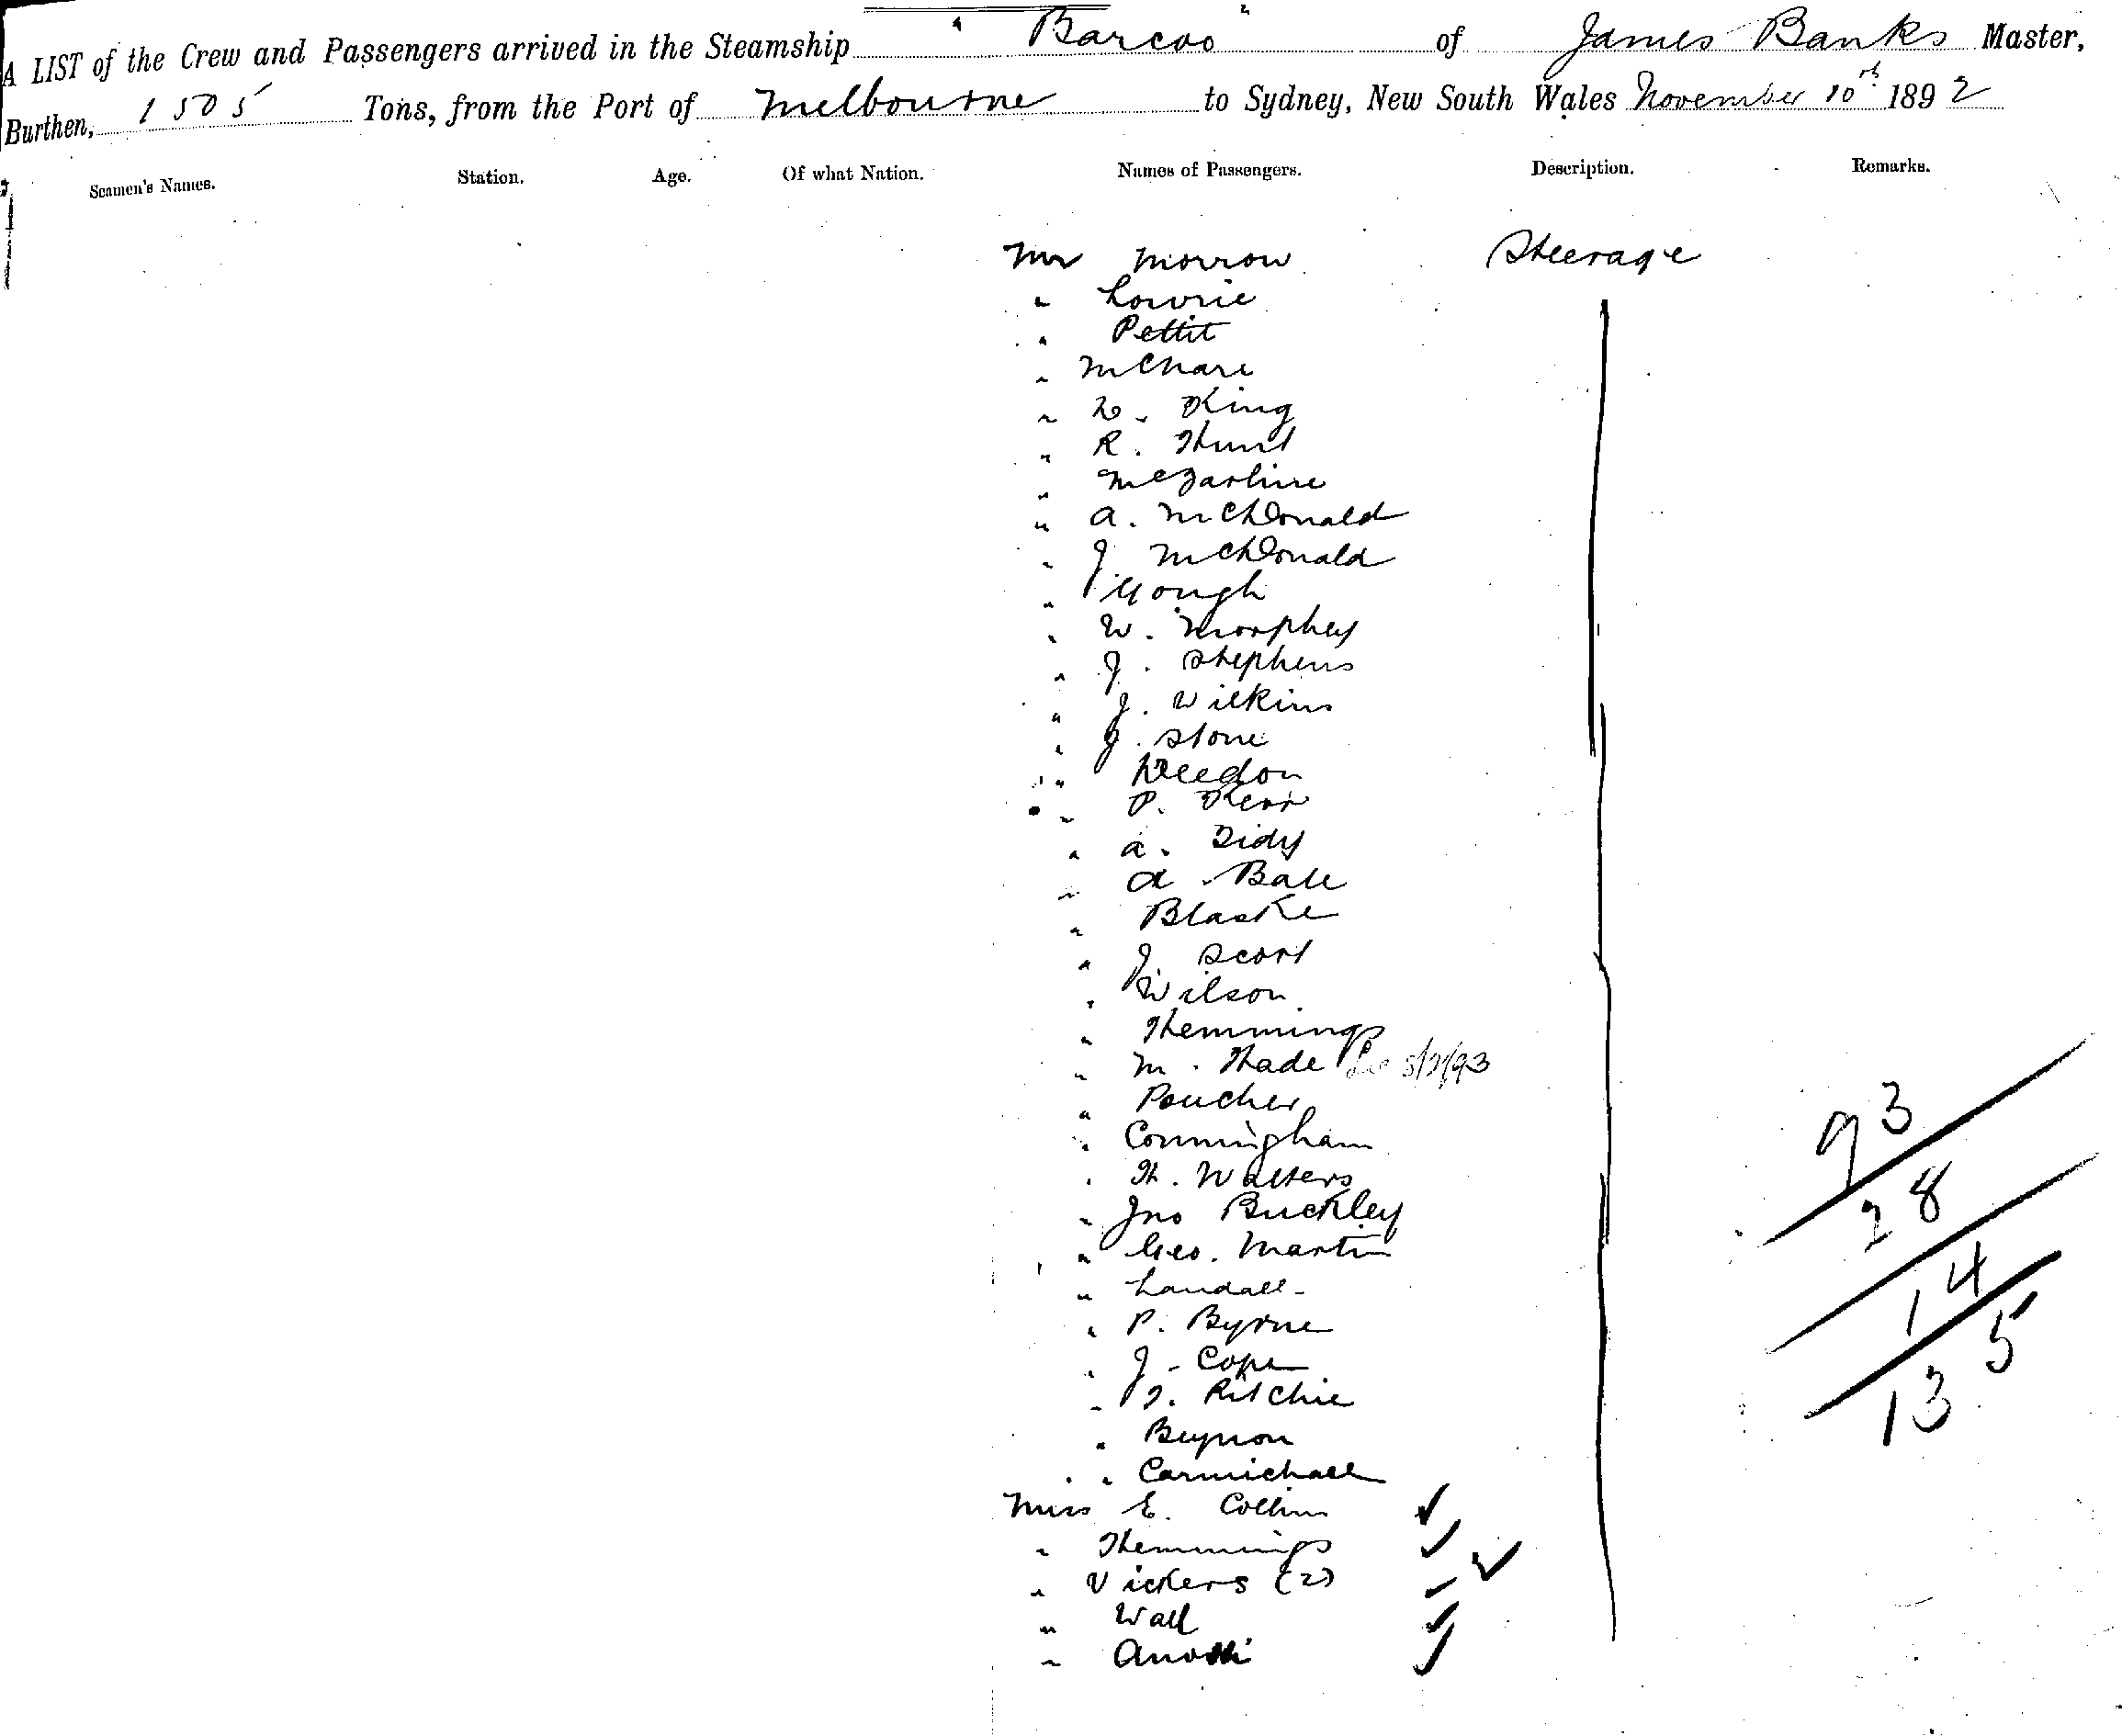 A LIST of the Crew and Passengers arrived in the Steamship "Barcoo" of James Banks Master,
Burthen, 1505 Tons, from the Port of Melbourne to Sydney, New South Wales November 10th 1892
Seamen's Names. Station. Age. Of what Nation. Names of Passengers. Description. Remarks.
Mr Morrow Steerage
" Lowrie
" Pettit
" McNare
" King
" R. Hunt
" McFarline
" A. McDonald
" J McDonald
" Gough
" W. Morphey
" J. Stephens
" J. Wilkins
" J. Stone
" Weedon
" P. Kerr
" A. Tidy
" A. Ball
" Blaske
" J Scott
" Wilson
" Hemmings
" M. Hade
" Poucher
" Conningham
" H. Walters
" Jno Buckley
" Geo. Martin
" Landall
" P. Byrne
" J. Cope
" T. Ritchie
" Beynon
" Carmichall
Miss E. Collins
" Hemmings
" Vickers (2)
" Wall
"
93
28
14
135